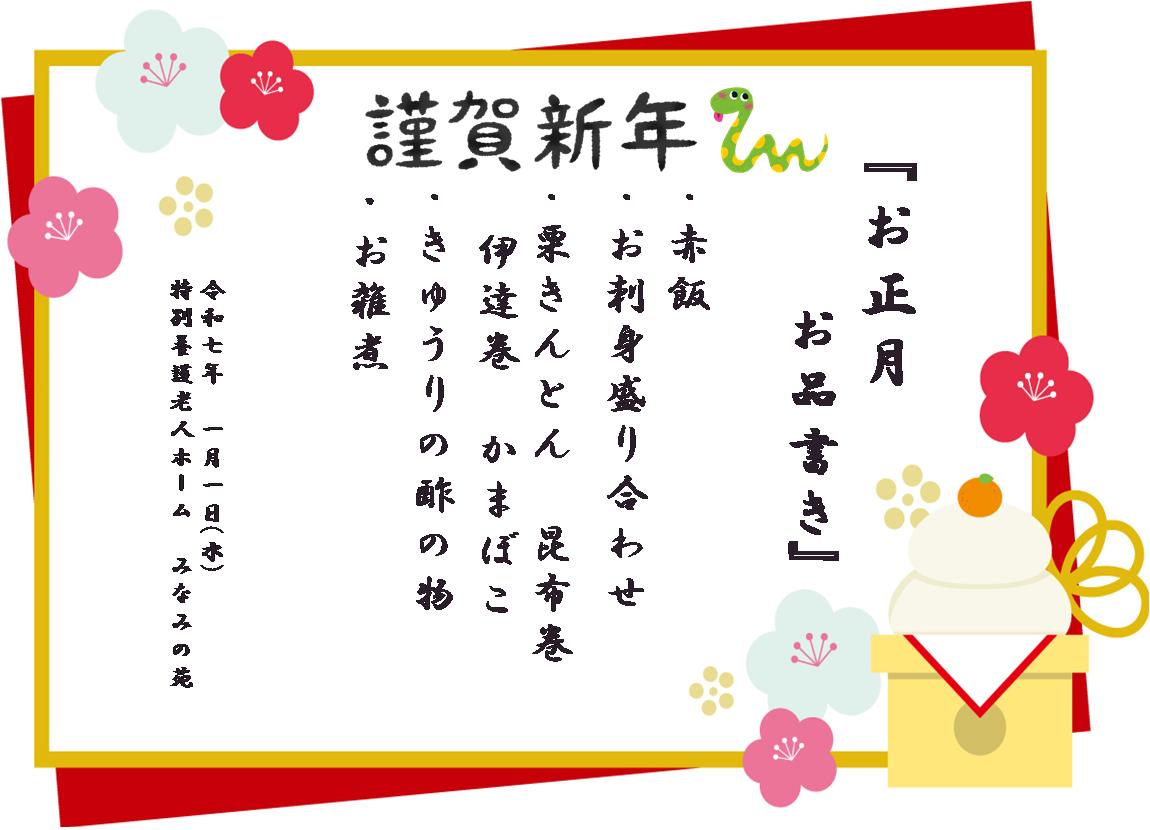 謹賀新年
『お正月
お品書き』
・赤飯
・お刺身盛り合わせ
・栗きんとん 昆布巻
伊達巻 かまぼこ
・きゅうりの酢の物
・お雑煮
令和七年 一月一日(水)
特別養護老人ホーム みなみの苑